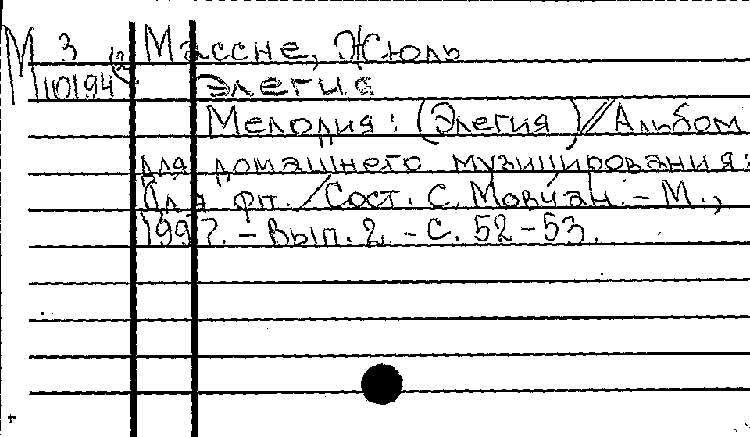 М 3 Массне, Жюль
110194 (2) Элегия
Мелодия: (Элегия) // Альбом
для домашнего музицирования:
Для фп. / Сост. С. Мовчан. - М.,
1997. - Вып. 2. - С. 52-53.